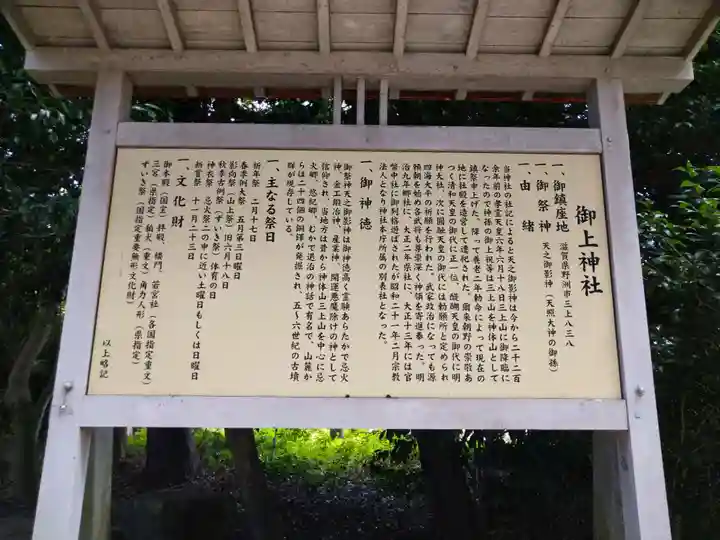 御上神社
一、御鎮座地　滋賀県野洲市三上八三八
一、御祭神　天之御影神（天照大神の御孫）
一、由緒
当神社の社記によると天之御影神は今から二千二百
余年前の孝霊天皇六年六月十八日三上山に御降臨に
なったので神孫の御上祝等は三上山を神体山として
鎮祭申上げた。降って養老二年勅命によって現在の
地に社殿を造営して遷祀された。爾来朝野の崇敬あ
つく清和天皇の御代に正一位、醍醐天皇の御代に明
神大社、次に円融天皇の御代には勅願所と定められ
四海太平の祈願を行われた。武家政治になっても源
頼朝を始め各武将も尊崇深く神領を寄進奉った。明
治九年郷社に、大正三年県社に、大正十三年には官
幣中社に御列格遊ばされたが昭和二十一年二月宗教
法人となり神社本庁所属の別表社となった。
一、御神徳
御祭神天之御影神は御神徳高く霊験あらたかで忌火
神、金工鍛冶神、産業神、開運悪魔除けの神として
信仰され、当地方は昔から神体山三上山を中心に忌
火郷、悠紀郷、むかで退治の神話で有名で、山麓か
らは二十四個の銅鐸が発掘され、五〜六世紀の古墳
群が現存している。
一、主なる祭日
祈年祭　二月十七日
春季例大祭　五月第三日曜日
影向祭（山上祭）旧六月十八日
秋季古例祭（ずいき祭）体育の日
神衣祭、忌火祭二の申に近い土曜日もしくは日曜日
新嘗祭　十一月二十三日
一、文化財
御本殿（国宝）拝殿、楼門、若宮社（各国指定重文）
三宮（県指定）狛犬（重文）角力人形（県指定）
ずいき祭（国指定重要無形文化財）
以上略記